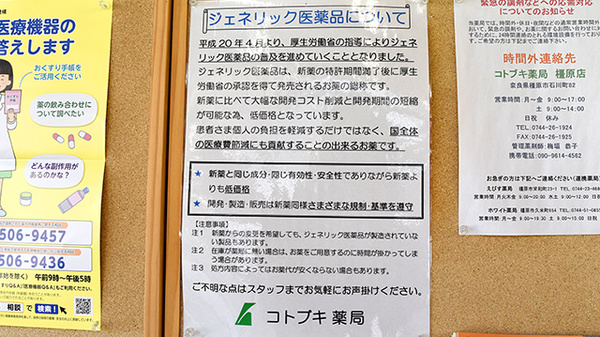 医療機器の
答えします
おくすり手帳を
ご活用ください
薬の飲み合わせに
ついて調べたい
どんな副作用が
あるのかな?
506-9457
506-9436
午前9時~午後5時
相談 で 検索!
ジェネリック医薬品について
平成20年4月より、厚生労働省の指導によりジェネ
リック医薬品の普及を進めていくこととなりました。
ジェネリック医薬品は、新薬の特許期間満了後に厚生
労働省の承認を得て発売されるお薬の総称です。
新薬に比べて大幅な開発コスト削減と開発期間の短縮
が可能な為、低価格となっています。
患者さま個人の負担を軽減するだけではなく、国全体
の医療費節減にも貢献することの出来るお薬です。
★ 新薬と同じ成分・同じ有効性・安全性でありながら新薬よ
りも低価格
★ 開発・製造・販売は新薬同様さまざまな規制・基準を遵守
【注意事項】
注1 新薬からの変更を希望しても、ジェネリック医薬品が製造されていな
い製品もあります。
注2 在庫が薬局に無い場合は、お薬をご用意するのに時間が掛かってしま
う場合があります。
注3 処方内容によってはお薬代が安くならない場合もあります。
ご不明な点はスタッフまでお気軽にお声掛けください。
コトブキ薬局
緊急の調剤などへの応需対応
についてのお知らせ
時間外連絡先
コトブキ薬局 橿原店
奈良県橿原市石川町82
営業時間:月~金 9:00~17:00
土 9:00~14:00
日祝 休み
TEL:0744-26-1924
FAX:0744-26-1925
携帯電話:090-9614-4562
お急ぎの方は下記へご連絡ください
えびす薬局
ホワイト薬局